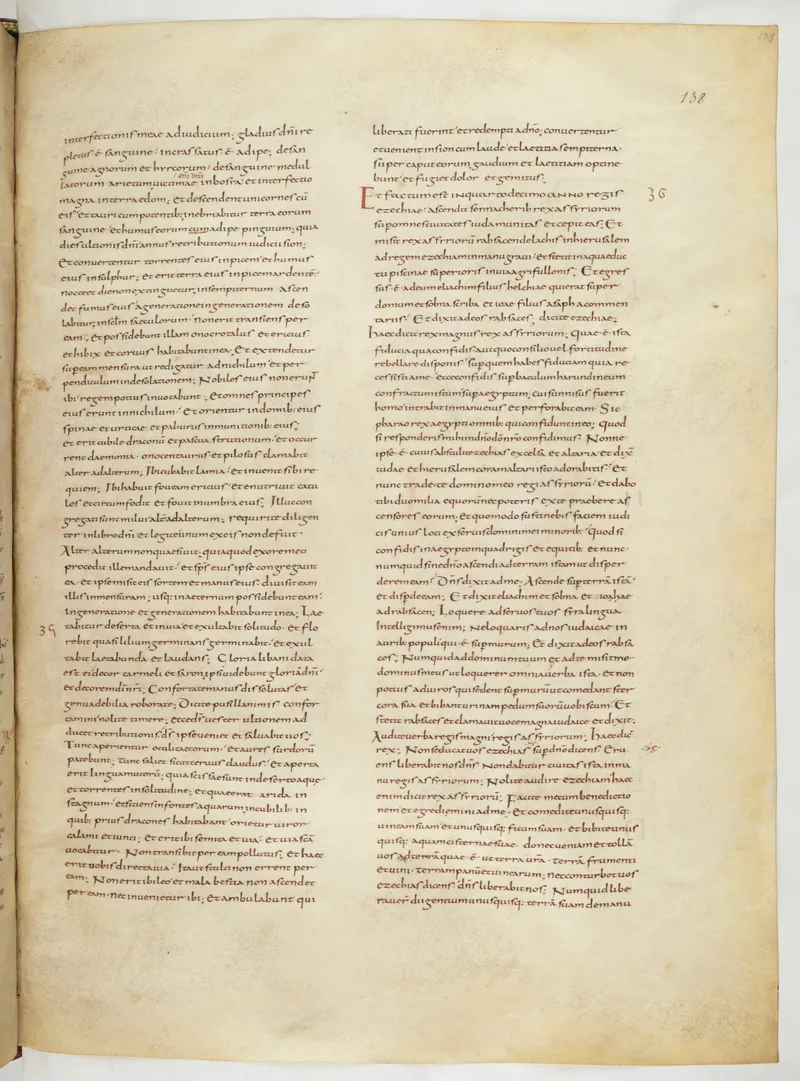 138
interfectionis meae ad iudicium; gladius dñi re
pletus ẽ sanguine incrassatus ẽ adipe; de sañ
guine agnorum et hyrcorum de sanguine medul
latorum arietum uictimae in bosra et interfectio
magna in terra edom; et descendent unicornes cũ
eis et tauri cum potentib; inebriabitur terra eorum
sanguine et humus eorum adipe pinguium; quia
dies ultionis dñi annus retributionum iudicii sion;
Et conuertentur torrentes eius in picem et humus
eius in sulphur; et erit terra eius in picem ardente
nocte et die non extinguetur in sempiternum ascen
det fumus eius a generatione in generationem deso
labitur in sc̃lm saeculorum non erit transiens per
eam; et possidebunt illam onocrotalus et ericius
et hibix et coruus habitabunt in ea; Et extendetur
sup eam mensura ut redigatur ad nichilum et per
pendiculum in desolationem; Nobiles eius non erunt
ibi regem potius inuocabunt; et omnes principes
eius erunt in nichilum Et orientur in domib; eius
spinae et urticae et paliurus in munitionib; eius;
et erit cubile draconũ et pascua strutionum et occur
rent daemonia onocentaurus et pilosus clamabit
alter ad alterum; Ibi cubabit lamia et inuenit sibi re
quiem; Ibi habuit foueam ericius et enutriuit catu
los et circumfodit et fouit in umbra eius; Illuc con
gregati sunt milui alter ad alterum; requirite diligen
ter in libro dñi et legite unum ex eis non defuit
Alter alterum non quaesiuit; quia quod ex ore meo
procedit ille mandauit et sp̃s eius ipse congregauit
ea et ipse misit eis sortem et manus eius diuisit eam
illis in mensuram; usq; in aeternum possidebunt eam
In generatione et generationem habitabunt in ea; Lae
35
tabitur deserta et inuia et exultabit solitudo et flo
rebit quasi lilium germinans germinabit et exul
tabit laetabunda et laudans; Gloria libani data
est ei decor carmeli et saron; ipsi uidebunt gloriã dñi
et decorem dĩ nrĩ; Confortate manus dissolutas et
genua debilia roborate; Dicite pusillanimis confor
tamini nolite timere; ecce dš uester ultionem ad
ducet retributionis dš ipse ueniet et saluabit uos;
Tunc aperientur oculi caecorum et aures surdorũ
patebunt; tunc saliet sicut ceruus claudus et aperta
erit lingua mutorũ; quia scissae sunt in deserto aque
et torrentes in solitudine; et quae erat arida in
stagnum et sitiens in fontes aquarum in cubilib; in
quib; prius dracones habitabant orietur uiror
calami et iunci; et erit ibi semita et uia et uia sc̃a
uocabitur Non transibit per eam pollutus; et haec
erit uobis directa uia ita ut stulti non errent per
eam; Non erit ibi leo et mala bestia non ascendet
per eam nec inuenietur ibi; et ambulabunt qui
liberati fuerint et redempti a dño; conuertentur
et uenient in sion cum laude et laetitia sempiterna
super caput eorum gaudium et laetitiam optine
bunt et fugiet dolor et gemitus;
Et factum est in quarto decimo anno regis
36
ezechiae ascendit sennacherib rex assyriorum
sup omnes ciuitates iuda munitas et cepit eas; Et
misit rex assyriorũ rabsacen de lachis in hierusalem
ad regem ezechiam in manu graui et stetit in aquaeduc
tu piscinae superioris in uia agri fullonis; Et egres
sus ẽ ad eum eliachim filius helchiae qui erat super
domum et sobna scriba et ioae filius asaph a commen
tariis Et dixit ad eos rabsaces; dicite ezechiae;
Haec dicit rex magnus rex assyriorum; Quae ẽ ista
fiducia qua confidis aut quo consilio uel fortitudine
rebellare disponis sup quem habes fiduciam quia re
cessisti a me ecce confidis sup baculum harundineum
confractum istum sup aegyptum; cui si innisus fuerit
homo intrabit in manu eius et perforabit eam Sic
pharao rex aegypti omnib; qui confidunt in eo; Quod
si responderis mihi in dño dõ nrõ confidimus Nonne
ipse ẽ cuius abstulit ezechias excelsa et altaria et dix̃
iudae et hierusalem coram altari isto adorabitis Et
nunc trade te domino meo regi assyriorũ et dabo
tibi duo milia equorũ nec poteris ex te praebere as
censores eorum; et quomodo sustinebis faciem iudi
cis unius loci ex seruis domini mei minorib; Quod si
confidis in aegypto in quadrigis et equitib; et nunc
numquid sine dño ascendi ad terram istam ut disper
derem eam Dñs dixit ad me; Ascende sup terrã istã
et disp̃de eam; Et dixit eliachim et sobna et ioahae
ad rabsacen; Loquere ad seruos tuos syra lingua
Intelligimus enim; Ne loquaris ad nos iudaice in
aurib; populi qui ẽ sup murum; Et dixit ad eos rabsa
ces; Numquid ad dominum tuum et ad te misit me
dominus meus ut loquerer omnia uerba ista et non
potius ad uiros qui sedent sup murũ ut comedant ster
cora sua et bibant urinam pedum suorũ uobiscum; Et
stetit rabsaces et clamauit uoce magna iudaice et dixit;
Audite uerba regis magni regis assyriorum; Haec dic̃
rex; Non seducat uos ezechias sup dño dicens Eru
ens liberabit nos dñs Non dabitur ciuitas ista in ma
nu regis assyriorum; Nolite audire ezechiam haec
enim dicit rex assyriorũ; Facite mecum benedictio
nem et egredimini ad me Et comedite unusquisq;
uineam suam et unusquisq; ficum suam et bibite unus
quisq; aquam cisternae suae donec ueniam et tollã
uos ad terrã quae ẽ ut terra ura terrã frumenti
et uini terram panũ et uinearum; nec conturbet uos
ezechias dicens dñs liberabit nos; Numquid libe
rauer̃ dii gentium unusquisq; terrã suam de manu